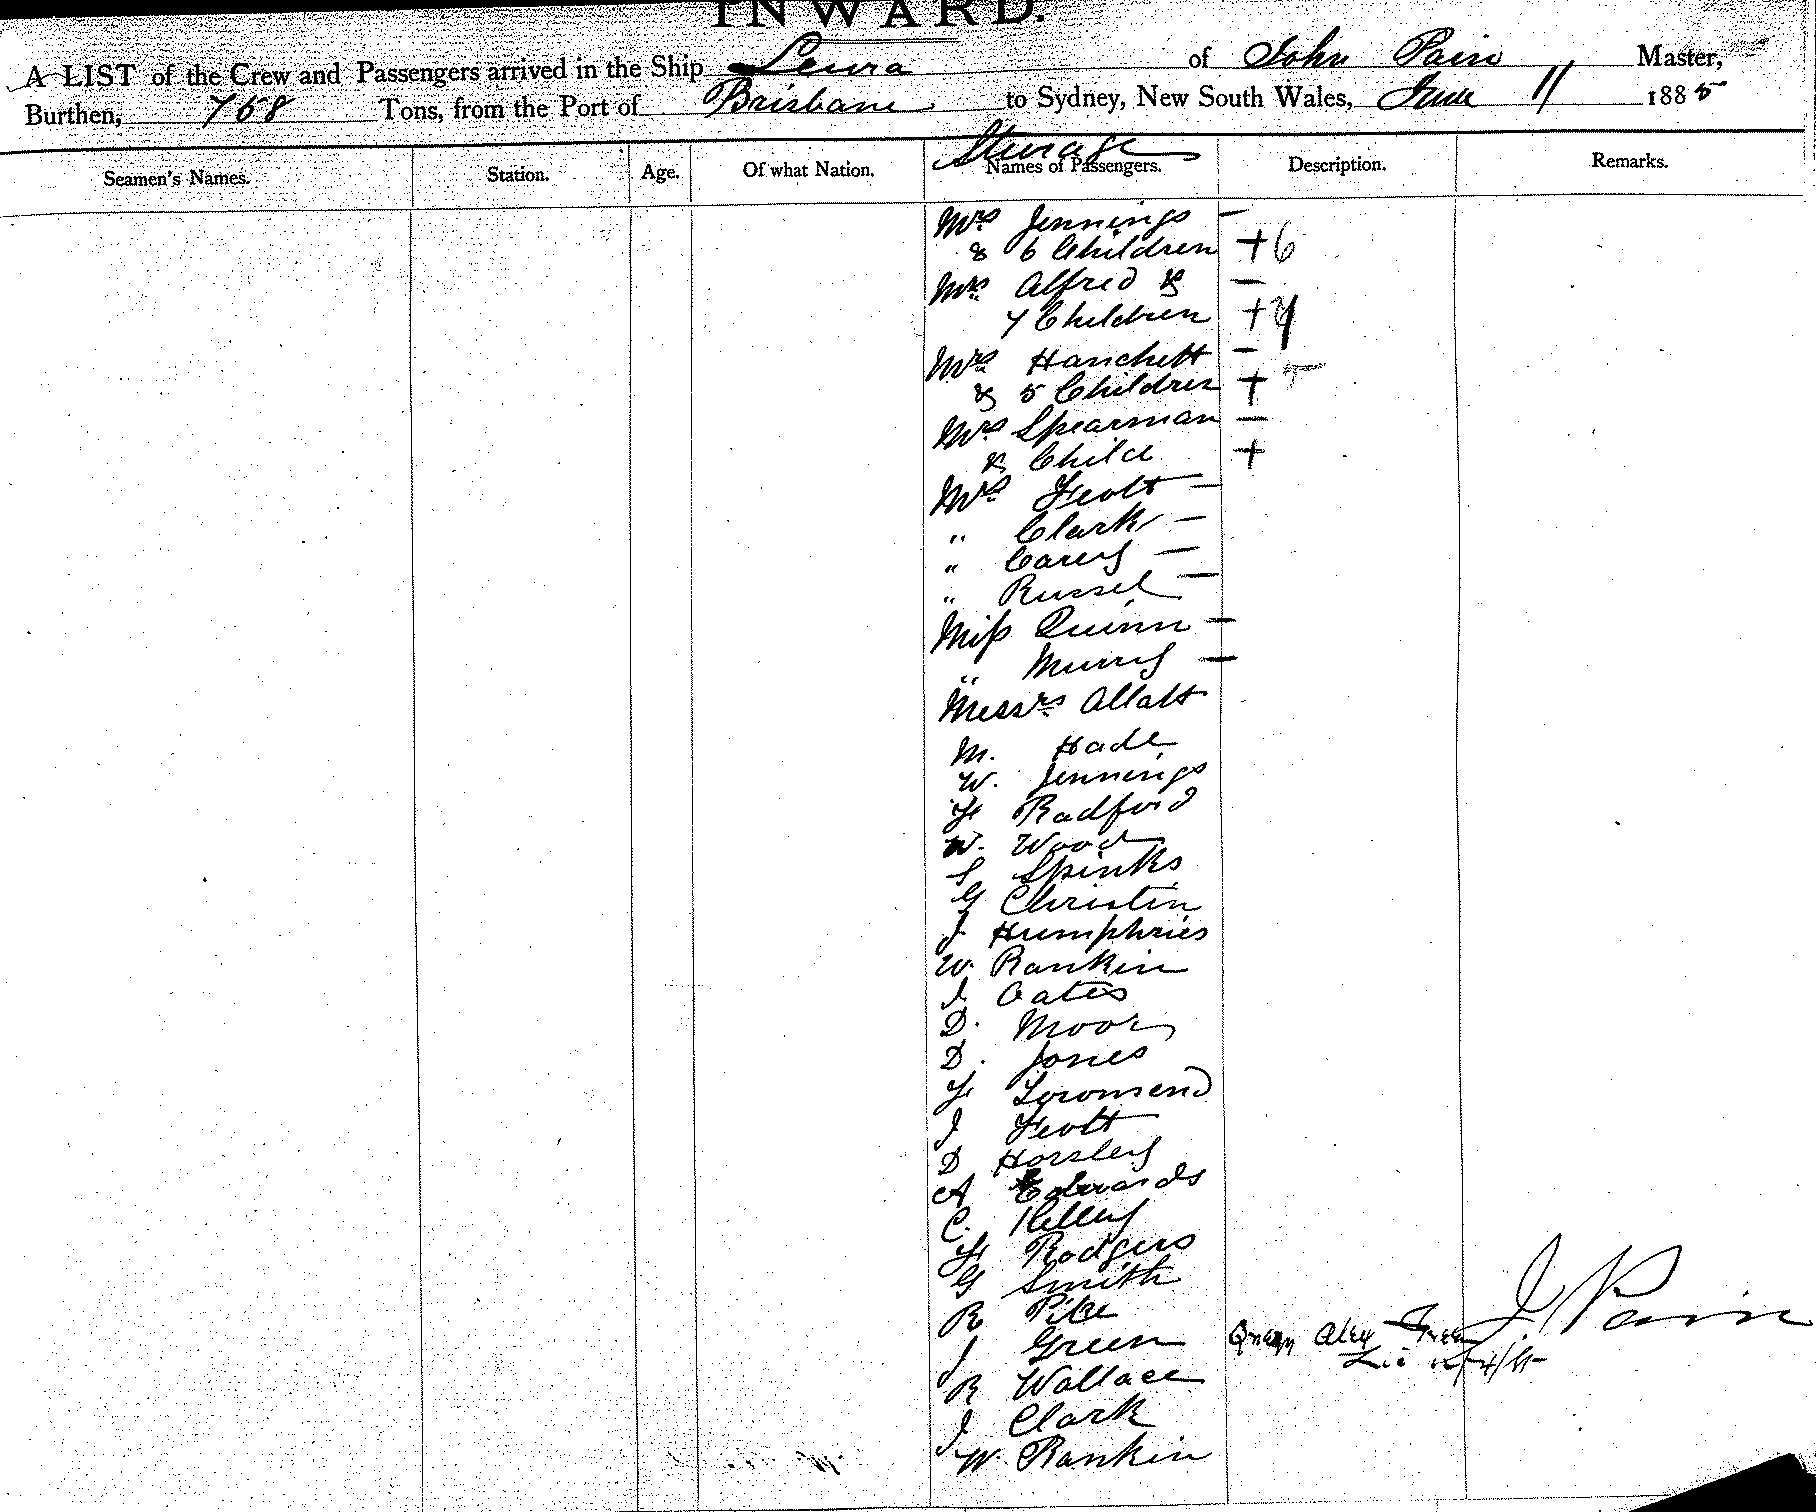 INWARD.
A LIST of the Crew and Passengers arrived in the Ship Leura of John Pain Master,
Burthen, 768 Tons, from the Port of Brisbane to Sydney, New South Wales, June 11 1885
Steerage
Seamen's Names. Station. Age. Of what Nation. Names of Passengers. Description. Remarks.
Mrs Jennings —
& 6 Children +6
Mrs Alfred & —
7 Children +7
Mrs Hanchett —
& 5 Children + 5
Mrs Spearman —
& Child +
Mrs Scott —
" Clark —
" Carey —
" Russel —
Miss Quinn —
" Murry —
Messrs Allatt
M. Hade
W. Jennings
F Radford
W. Wood
S Spinks
G Christin
J Humphries
W. Rankin
J. Oates
D. Moor
D. Jones
F Townsend
J Scott
D Horsley
A Edwards
C. Kelley
F Rodgers
G Smith
R Pike
J Green
J Pain
R Wallace
J Clark
W. Rankin